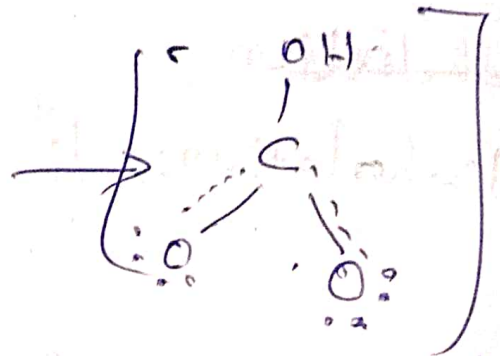 OH
C
O O